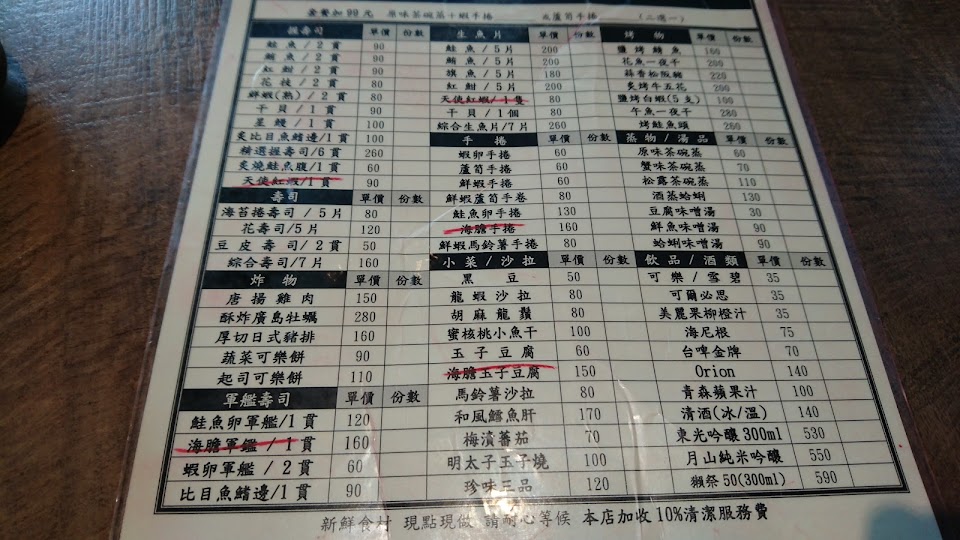 套餐加99元 原味茶碗蒸+蝦手捲 或蘆筍手捲 (二選一)
握壽司 單價 份數
鮭魚/2貫 90
鮪魚/2貫 90
紅魽/2貫 90
花枝/2貫 80
鮮蝦(熟)/2貫 80
干貝/1貫 90
星鰻/1貫 100
炙比目魚鰭邊/1貫 100
精選握壽司/6貫 260
炙燒鮭魚腹/1貫 60
天使紅蝦/1貫 90
壽司 單價 份數
海苔捲壽司/5片 80
花壽司/5片 120
豆皮壽司/2貫 50
綜合壽司/7片 160
炸物 單價 份數
唐揚雞肉 150
酥炸廣島牡蠣 280
厚切日式豬排 160
蔬菜可樂餅 90
起司可樂餅 110
軍艦壽司 單價 份數
鮭魚卵軍艦/1貫 120
海膽軍艦/1貫 160
蝦卵軍艦/2貫 60
比目魚鰭邊/1貫 90
生魚片 單價 份數
鮭魚/5片 200
鮪魚/5片 200
旗魚/5片 180
紅魽/5片 200
天使紅蝦/1隻 80
干貝/1個 80
綜合生魚片/7片 260
手捲 單價 份數
蝦卵手捲 60
蘆筍手捲 60
鮮蝦手捲 60
鮮蝦蘆筍手卷 80
鮭魚卵手捲 130
海膽手捲 160
鮮蝦馬鈴薯手捲 80
小菜/沙拉 單價 份數
黑豆 50
龍蝦沙拉 80
胡麻龍鬚 80
蜜核桃小魚干 100
玉子豆腐 60
海膽玉子豆腐 150
馬鈴薯沙拉 80
和風鱈魚肝 170
梅漬蕃茄 70
明太子玉子燒 100
珍味三品 120
烤物 單價 份數
鹽烤鯖魚 160
花魚一夜干 200
蒜香松阪豬 220
炙烤牛五花 200
鹽烤白蝦(5支) 100
午魚一夜干 280
烤鮭魚頭 260
蒸物/湯品 單價 份數
原味茶碗蒸 60
蟹味茶碗蒸 70
松露茶碗蒸 110
酒蒸蛤蜊 130
豆腐味噌湯 30
鮮魚味噌湯 90
蛤蜊味噌湯 90
飲品/酒類 單價 份數
可樂/雪碧 35
可爾必思 35
美麗果柳橙汁 35
海尼根 75
台啤金牌 70
Orion 140
青森蘋果汁 100
清酒(冰/溫) 140
東光吟釀300ml 530
月山純米吟釀 550
獺祭50(300ml) 590
新鮮食材 現點現做 請耐心等候 本店加收10%清潔服務費